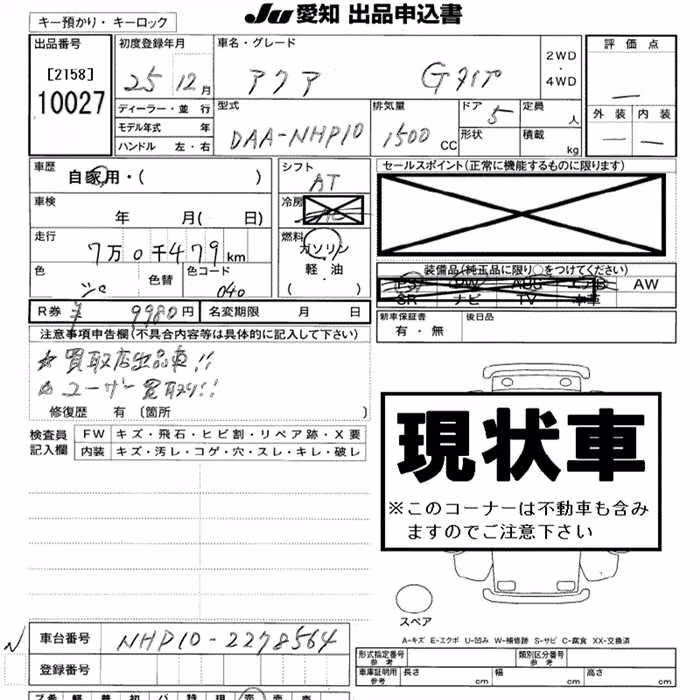 キー預かり・キーロック
Ju 愛知 出品申込書
出品番号
[2158]
10027
初度登録年月
25 12月
ディーラー・並行
モデル年式 年
ハンドル 左・右
車名・グレード
アクア Gタイプ
2WD
・
4WD
型式
DAA-NHP10
排気量
1500CC
ドア
5
形状
定員
人
積載
kg
評価点
—
外装 内装
— —
車歴
自家用・( )
車検
年 月( 日)
走行
7万0千479km
色 色替 色コード
シロ 040
シフト
AT
冷房
燃料
ガソリン
軽・油
( )
セールスポイント(正常に機能するものに限ります)
装備品(純正品に限り○をつけてください)
PS PW ABS エアB AW
SR ナビ TV 本革
R券 ¥ 9980円 名変期限 月 日
新車保証書
有・無
後日品
注意事項申告欄(不具合内容等は具体的に記入して下さい)
☆買取店出品車!!
☆ユーザー買取り!!
修復歴 有〔箇所 〕
検査員
記入欄
FW キズ・飛石・ヒビ割・リペア跡・X要
内装 キズ・汚レ・コゲ・穴・スレ・キレ・破レ
現状車
※このコーナーは不動車も含み
ますのでご注意下さい
スペア
A-キズ E-エクボ U-凹み W-補修跡 S-サビ C-腐食 XX-交換済
車台番号 NHP10-2278564
登録番号
形式指定番号
参考
類別区分番号
参考
車庫証明用
参考
長さ cm 幅 cm 高さ cm